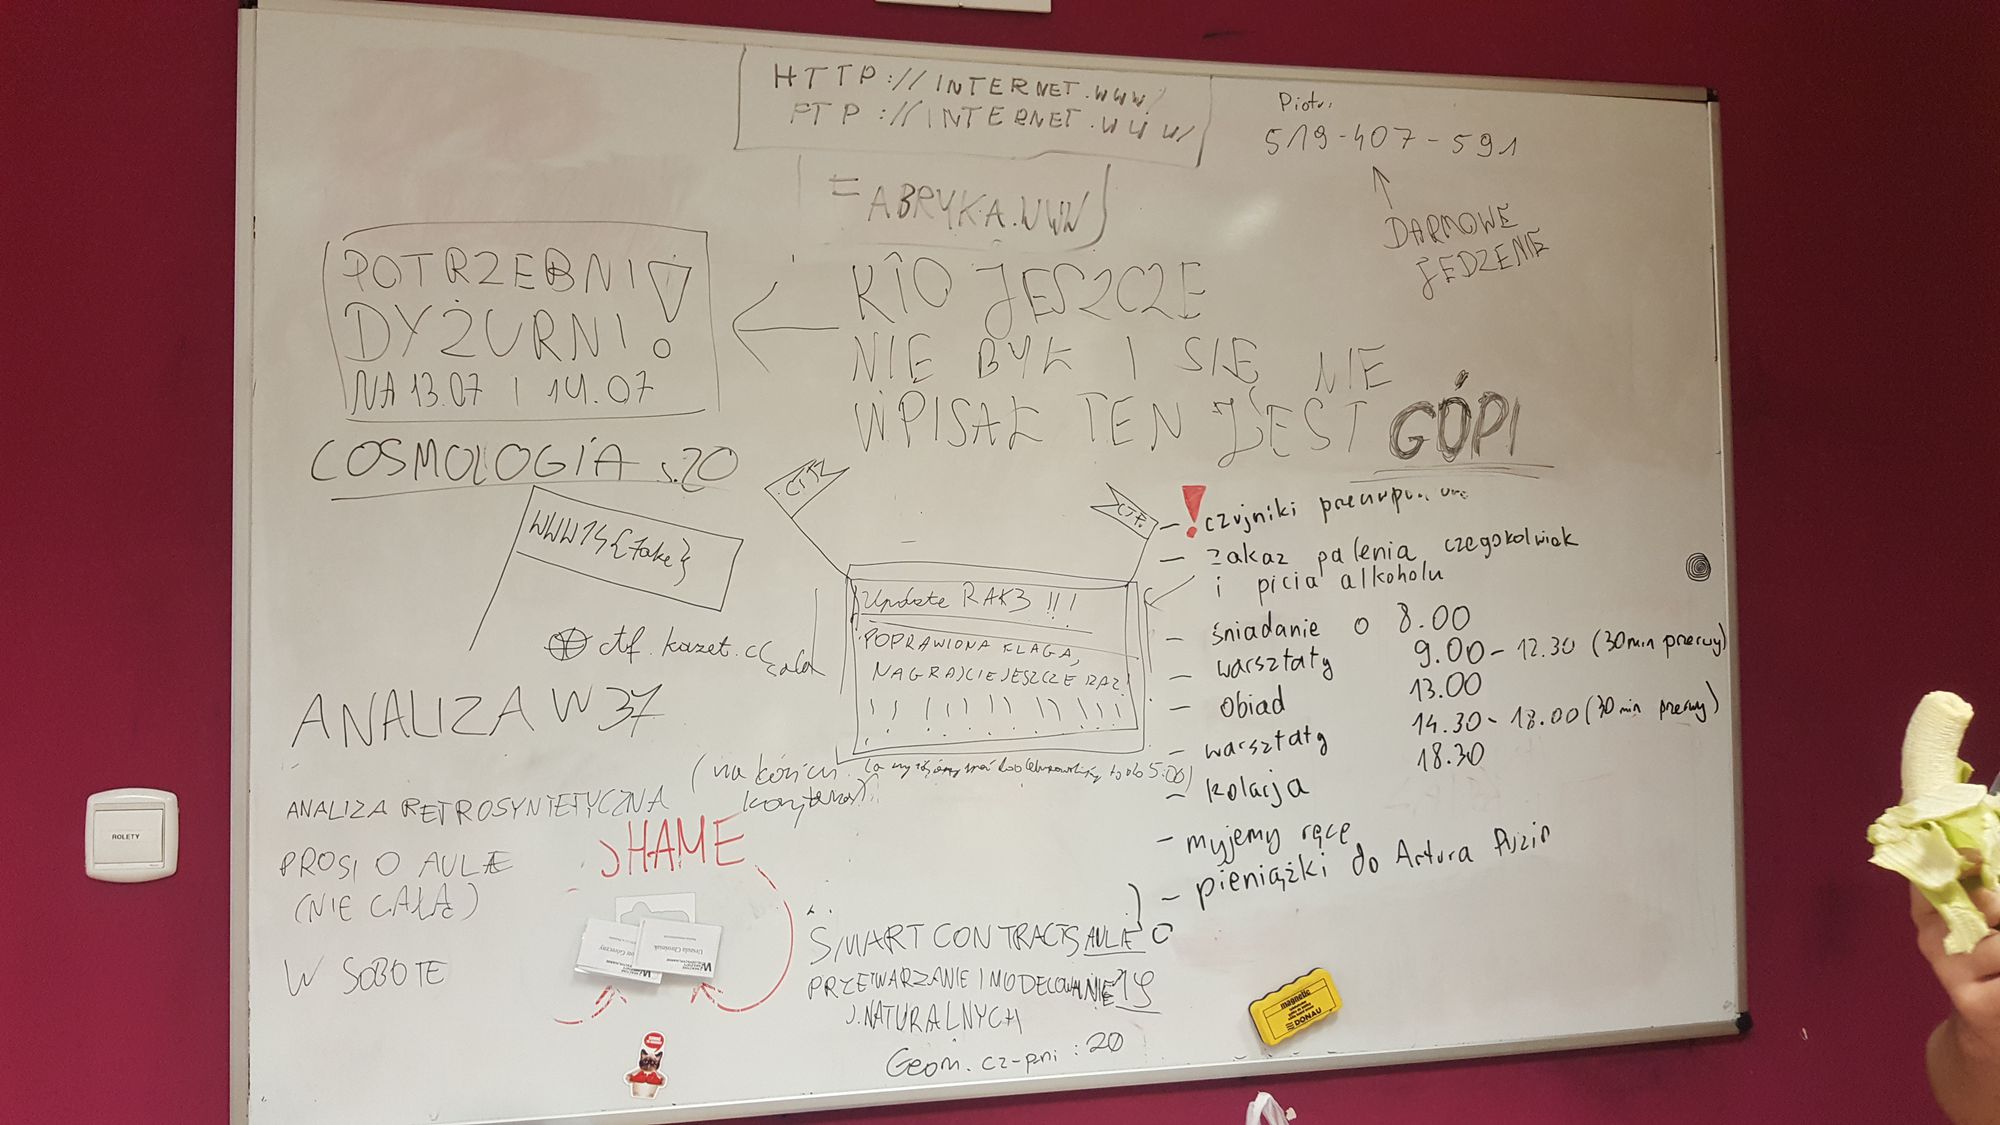 HTTP://INTERNET.WWW/
FTP://INTERNET.WWW/
=ABRYKA.WWW
Piotr:
519-407-591
DARMOWE
JEDZENIE
POTRZEBNI
DYŻURNI!
NA 13.07 I 14.07
KTO JESZCZE
NIE BYŁ I SIĘ NIE
WPISAŁ TEN JEST GÓPI
COSMOLOGIA s.20
WWW14{fake}
CTF
ctf.kazet.cc
Update RAK3 !!!
POPRAWIONA FLAGA,
NAGRAJCIE JESZCZE RAZ!
! ! ! ! ! ! ! ! ! ! !
- ! czujniki
- zakaz palenia czegokolwiek
i picia alkoholu
- śniadanie o 8.00
- warsztaty 9.00-12.30 (30min przerwy)
- obiad 13.00
- warsztaty 14.30-18.00 (30min przerwy)
- kolacja 18.30
- myjemy ręce
- pieniążki do Artura
ANALIZA W 37
ANALIZA RETROSYNTETYCZNA
PROSI O AULĘ
(NIE CAŁĄ)
W SOBOTE
(na końcu
korytarza)
5:00)
SHAME
Urszula
SMART CONTRACTS AULA O
PRZETWARZANIE I MODELOWANIE 19
J. NATURALNYCH
Geom. cz-pni : 20
magnetic
DONAU
ROLETY